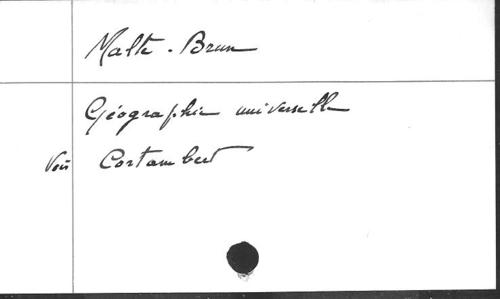 Malte-Brun
Géographie universelle
Voir Cortambert